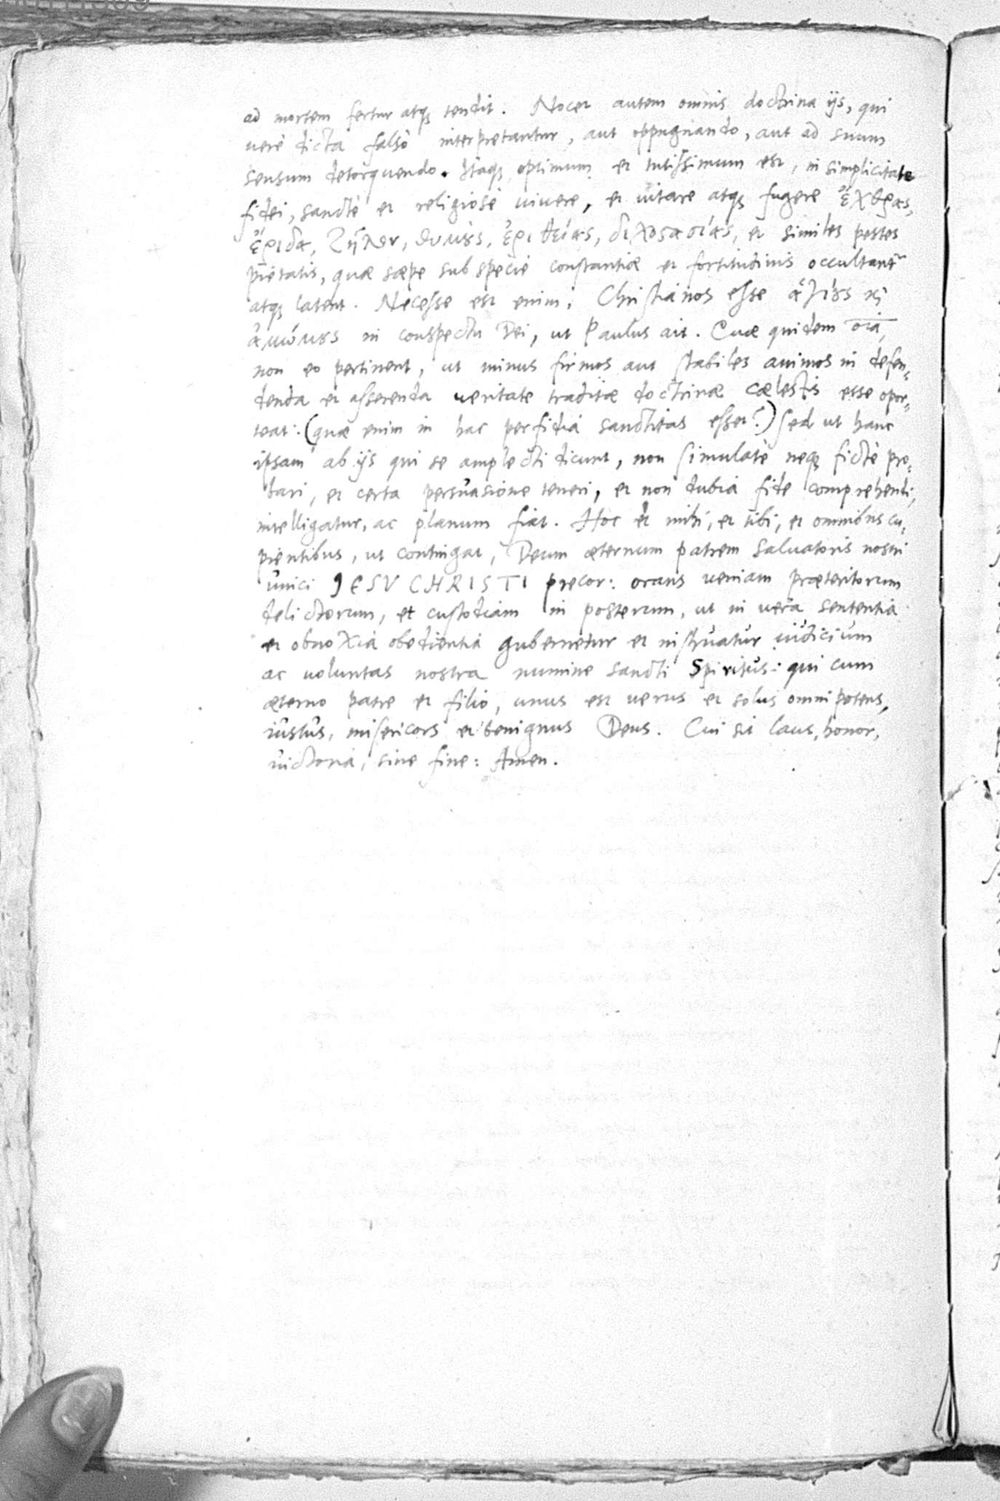 ad mortem fertur atq; tendit. Nocet autem omnis doctrina ijs, qui
verè dicta falsò interpretantur, aut oppugnando, aut ad suum
sensum detorquendo. Itaq; optimum et tutissimum est, in simplicitate
fidei, sanctè et religiosè vivere, et vitare atq; fugere ἔχθρας,
ἔριδα, ζῆλον, θυμȣ̀ς, ἐριθείας, διχοστασίας, et similes pestes
pietatis, quæ sæpe sub specie constantiæ et fortitudinis occultant~
atq; latent. Necesse est enim, Christianos esse ἁγίȣς κ̀
ἀμώμȣς in conspectu Dei, ut Paulus ait. Quæ quidem oīa,
non eo pertinent, ut minus firmos aut stabiles animos in defen=
denda et asserenda veritate traditæ doctrinæ cælestis esse opor=
teat: (quæ enim in hac perfidia sanctitas esset?) sed ut hanc
ipsam ab ijs qui se amplecti dicunt, non simulatè neq; fictè pro=
bari, et certa persuasione teneri, et non dubia fide comprehendi,
intelligatur, ac planum fiat. Hoc et mihi, et tibi, et omnibus cu=
pientibus, ut contingat, Deum æternum patrem salvatoris nostri
unici JESV CHRISTI precor: orans veniam præteritorum
delictorum, et custodiam in posterum, ut in vera sententia
et obnoxia obedientia gubernetur et instruatur iudicium
ac voluntas nostra numine sancti Spiritus: qui cum
æterno patre et filio, unus est verus et solus omnipotens,
iustus, misericors et benignus Deus. Cui sit laus, honor,
victoria, sine fine: Amen.